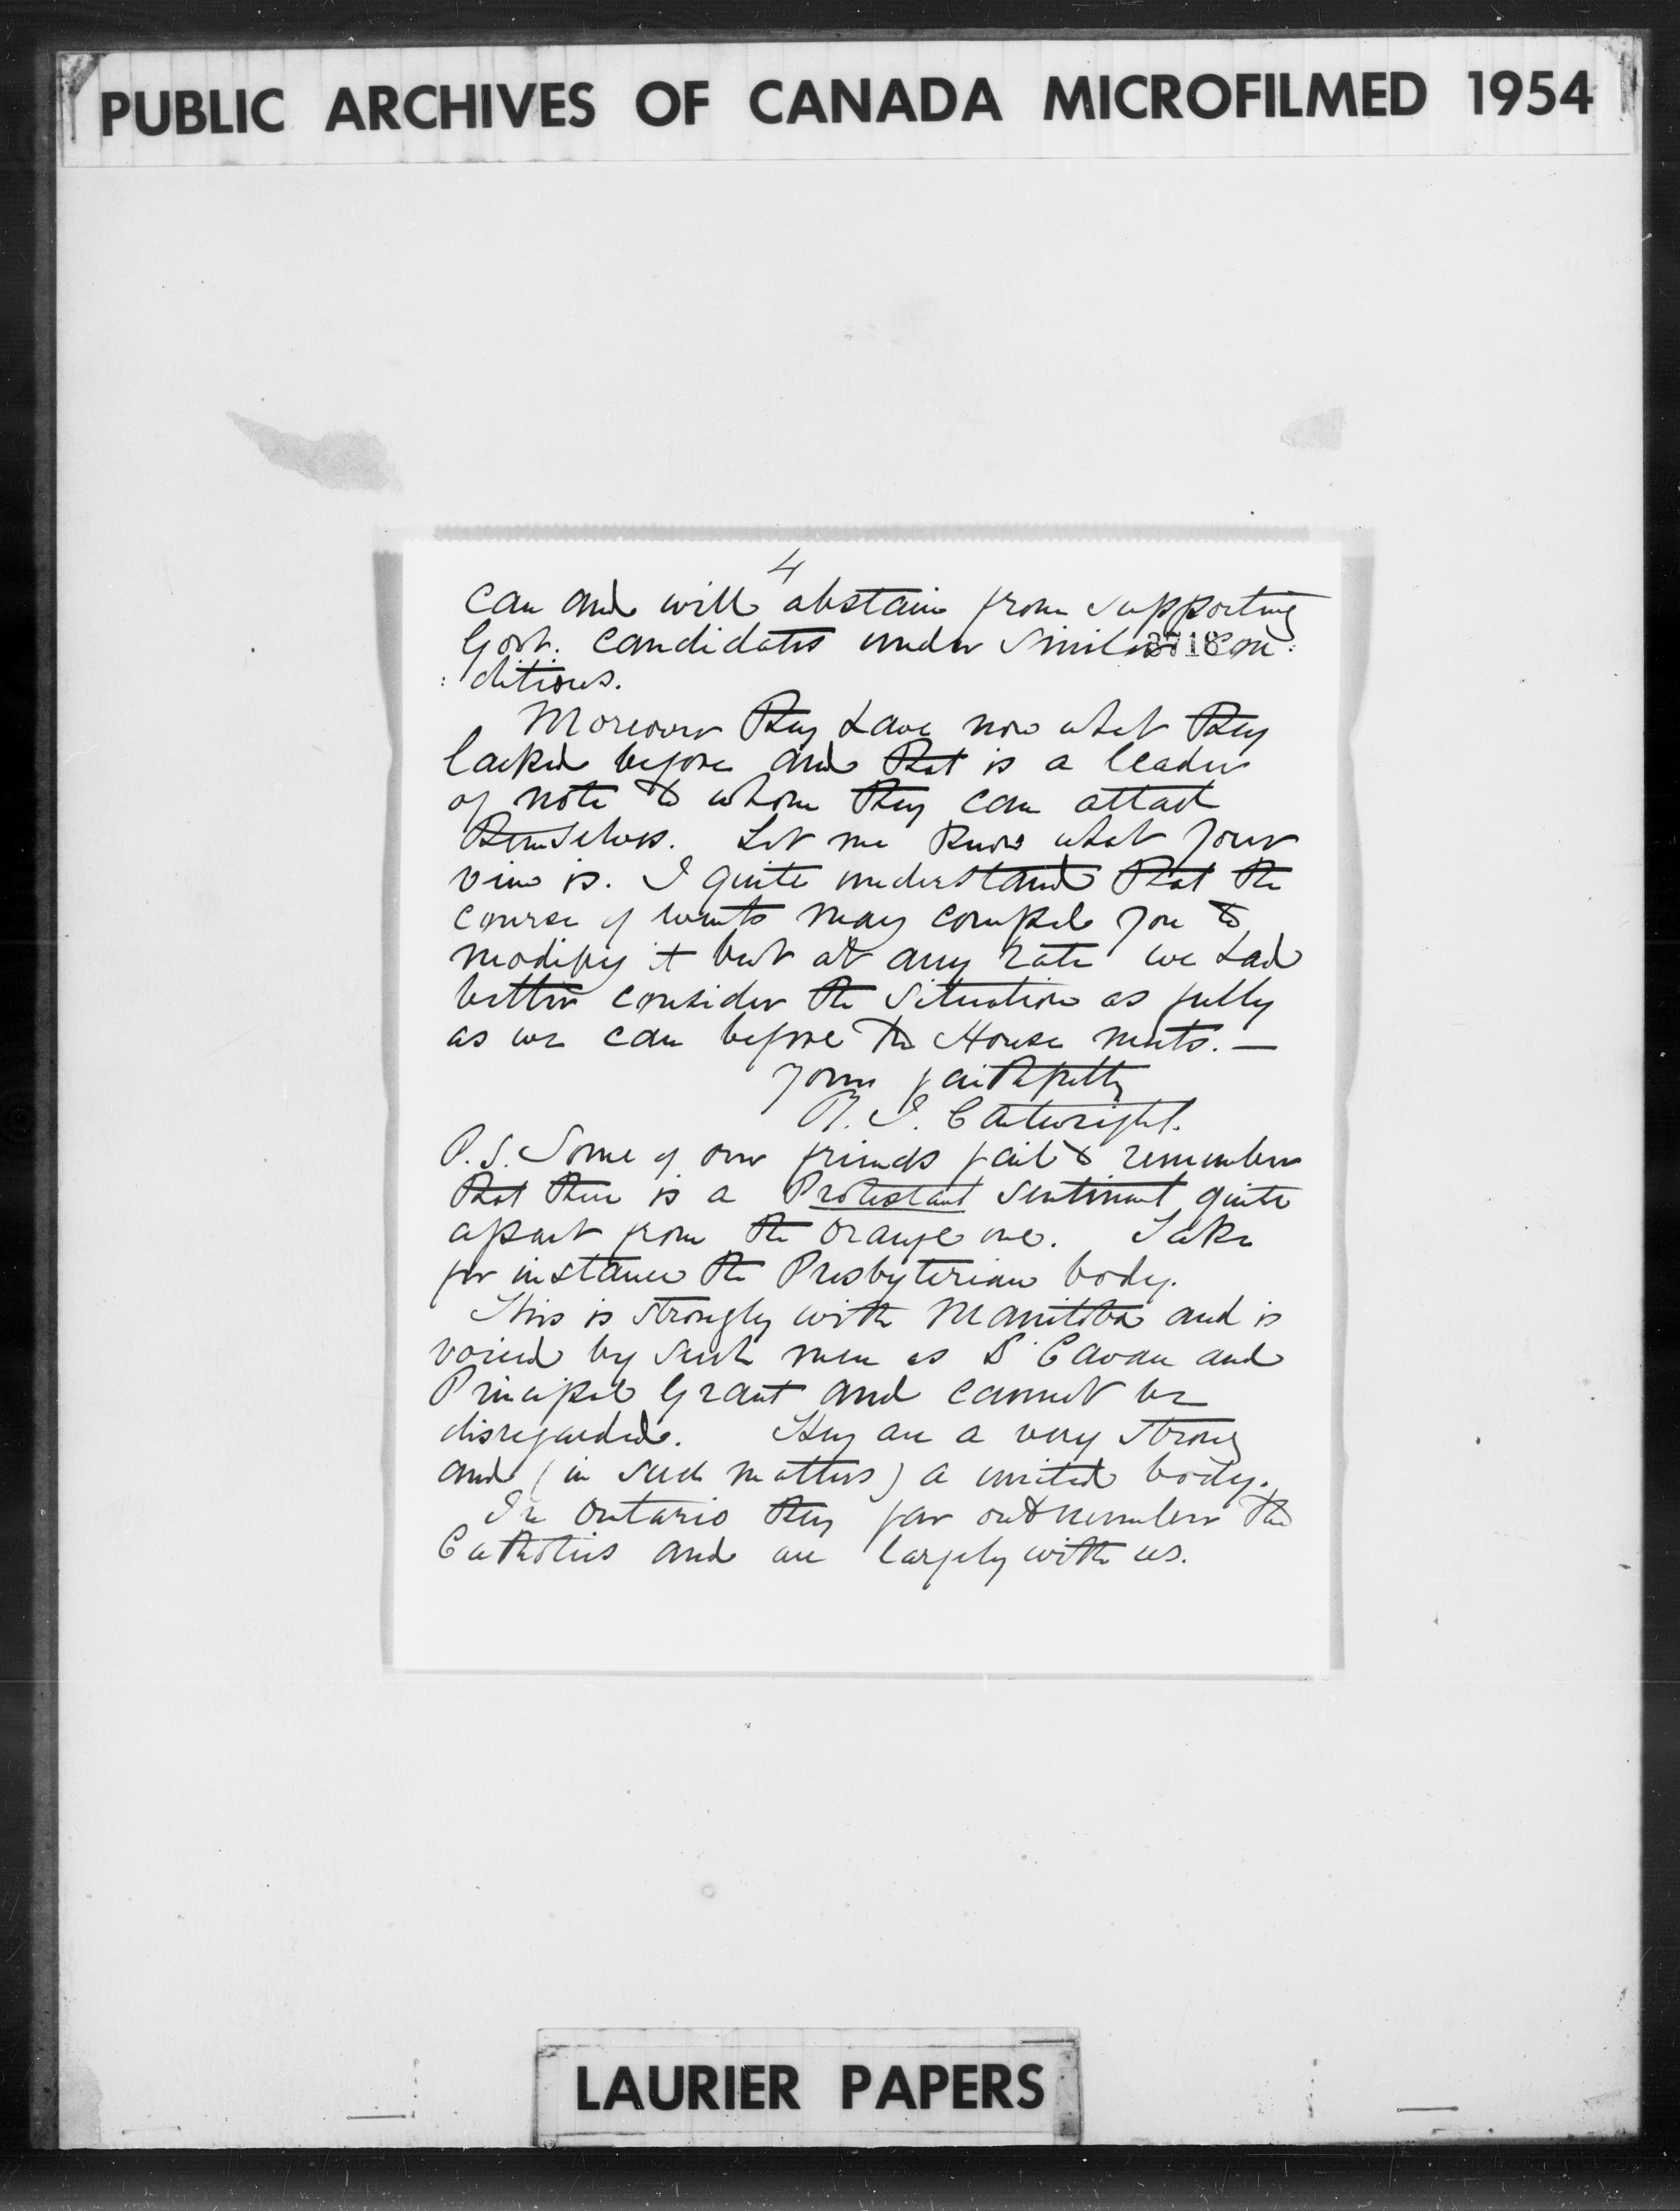 PUBLIC ARCHIVES OF CANADA MICROFILMED 1954
4
can and will abstain from supporting
Govt. candidates under similar con
3718
: ditions.
Moreover they have now what they
lacked before and that is a leader
of note to whom they can attach
themselves. Let me know what your
view is. I quite understand that the
course of events may compel you to
modify it but at any rate we had
better consider the situation as fully
as we can before the House meets. —
Yours faithfully
R. J. Cartwright.
P.S. Some of our friends fail to remember
that there is a Protestant sentiment quite
apart from the Orange one. Take
for instance the Presbyterian body.
This is strongly with Manitoba and is
voiced by such men as Dr Cavan and
Principal Grant and cannot be
disregarded. They are a very strong
and (in such matters) a united body.
In Ontario they far outnumber the
Catholics and are largely with us.
LAURIER PAPERS